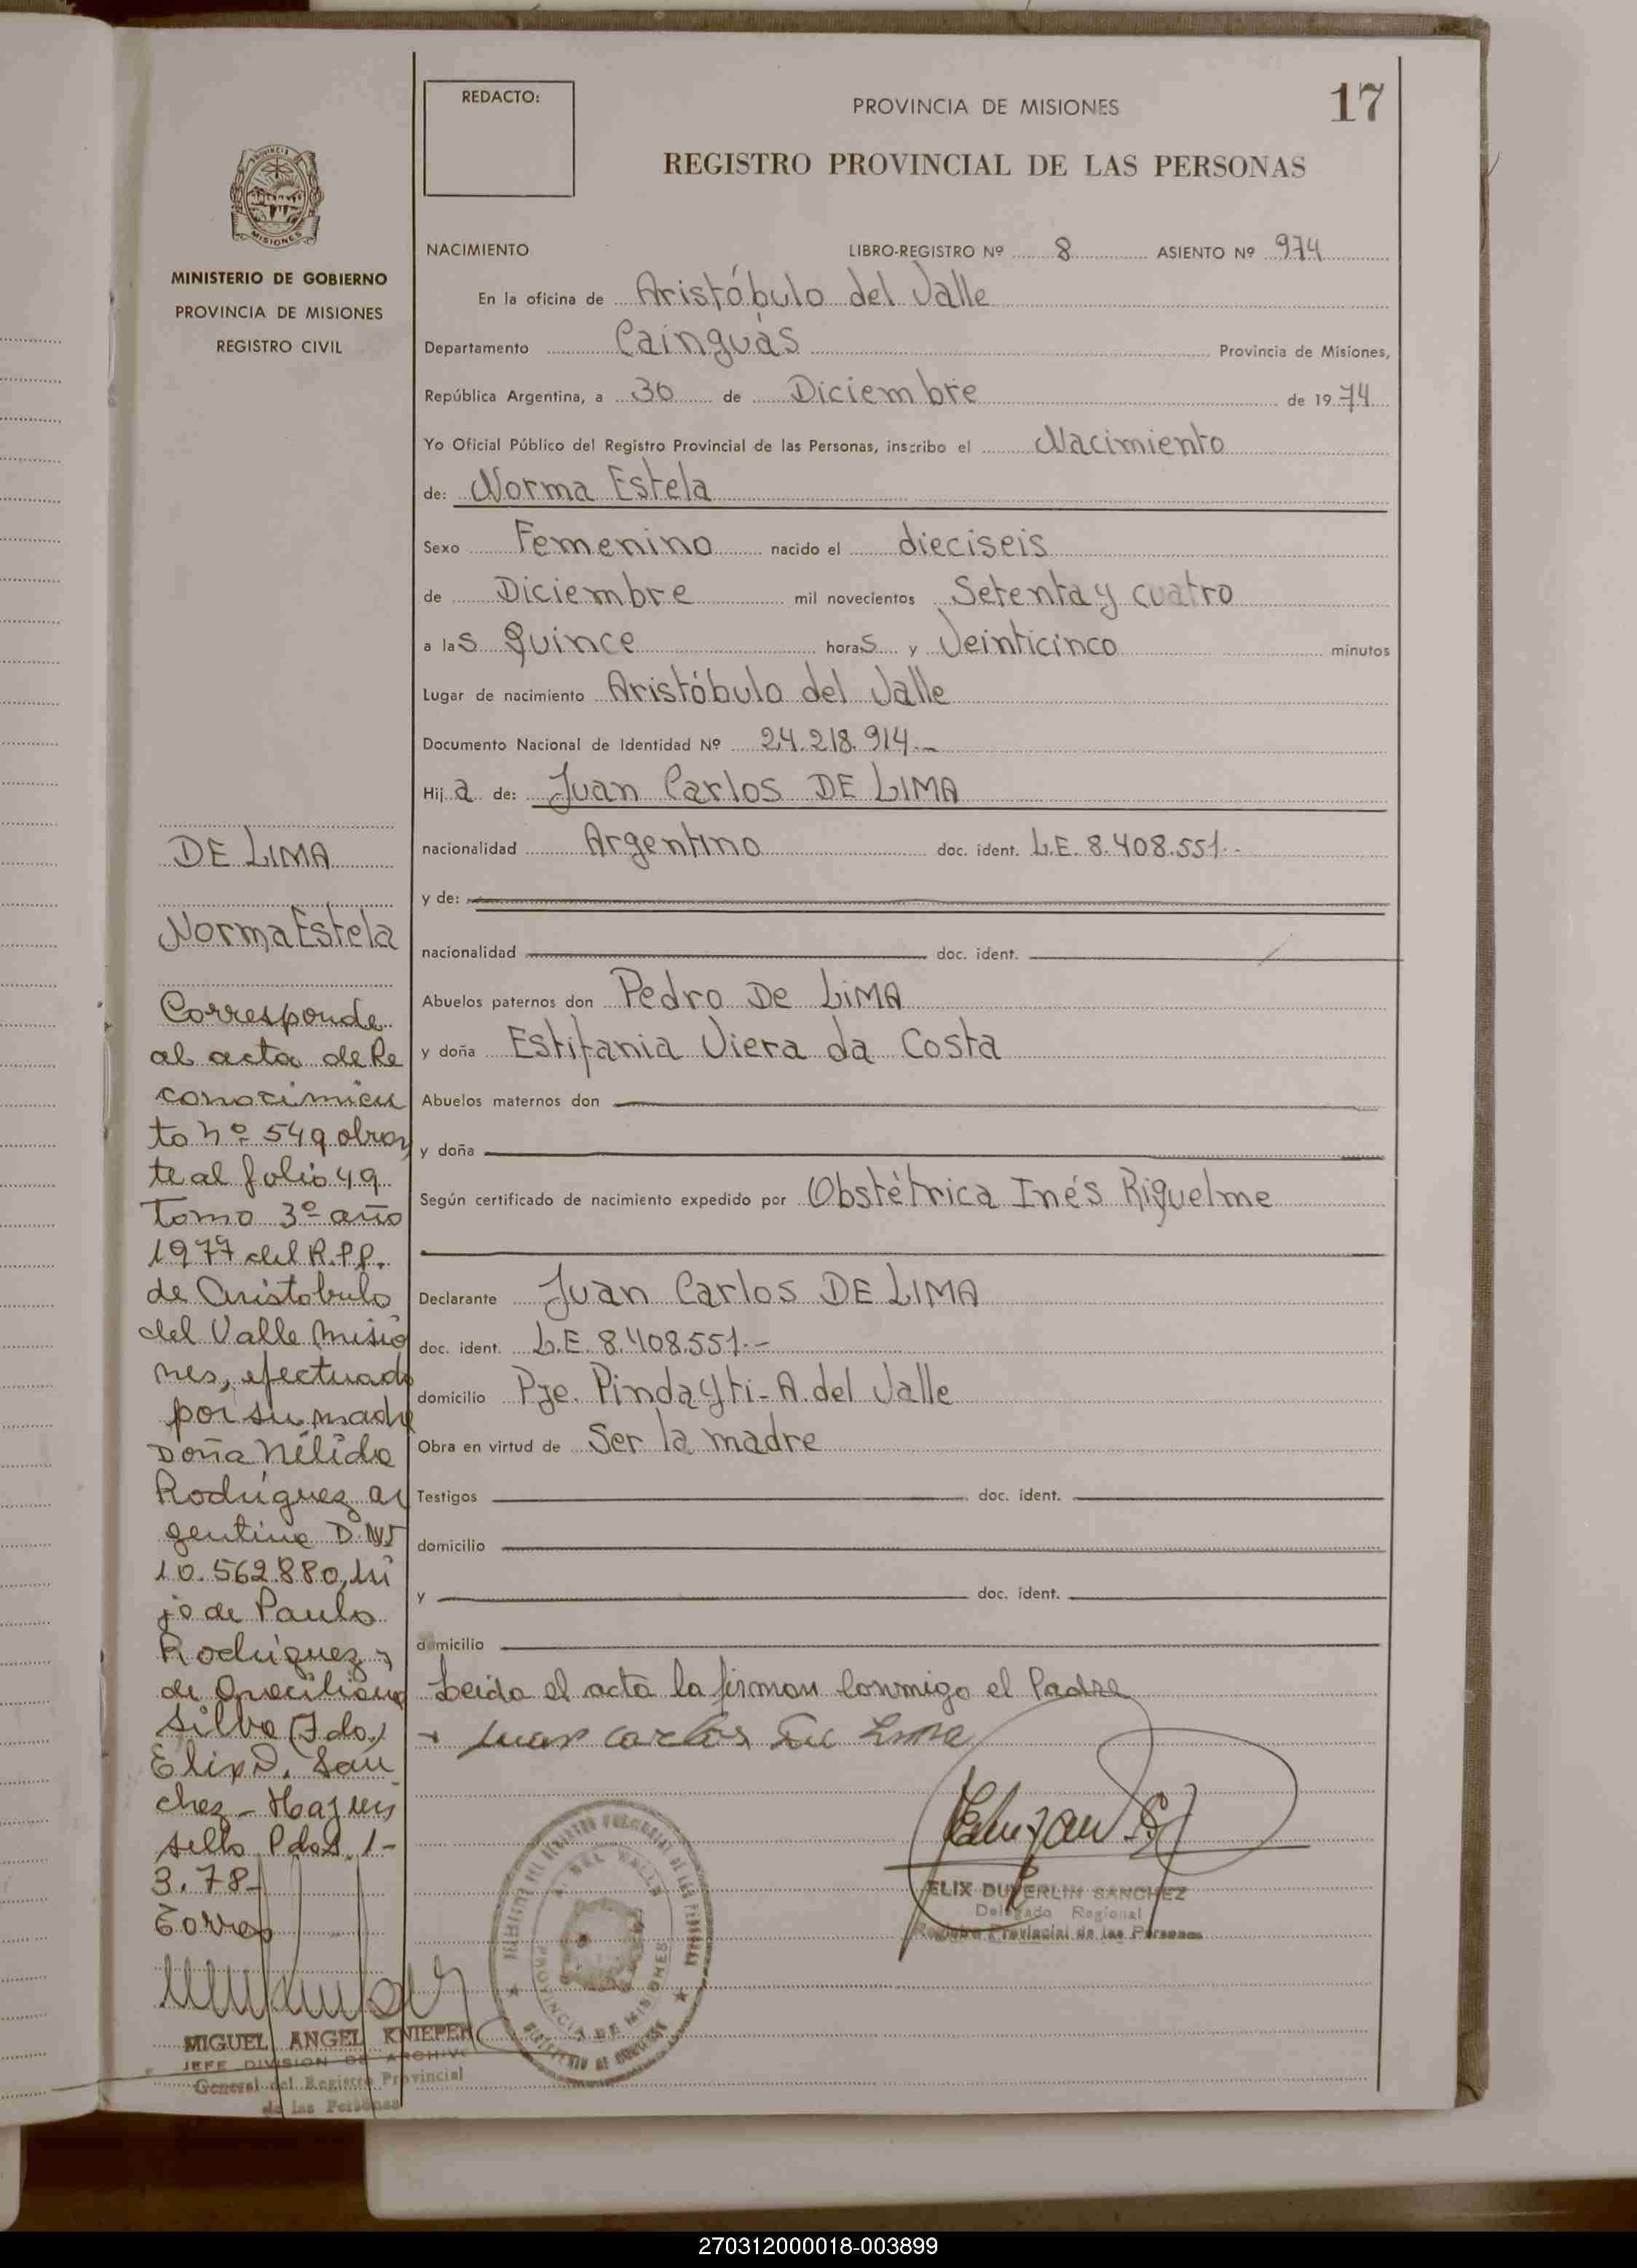 REDACTO:
PROVINCIA DE MISIONES
17
REGISTRO PROVINCIAL DE LAS PERSONAS
MISIONES
MINISTERIO DE GOBIERNO
PROVINCIA DE MISIONES
REGISTRO CIVIL
NACIMIENTO LIBRO-REGISTRO Nº 8 ASIENTO Nº 974
En la oficina de Aristóbulo del Valle
Departamento Cainguás Provincia de Misiones,
República Argentina, a 30 de Diciembre de 1974
Yo Oficial Público del Registro Provincial de las Personas, inscribo el Nacimiento
de: Norma Estela
Sexo Femenino nacido el dieciseis
de Diciembre mil novecientos Setenta y cuatro
a las Quince horas y Veinticinco minutos
Lugar de nacimiento Aristóbulo del Valle
Documento Nacional de Identidad Nº 24.218.914.-
Hija de: Juan Carlos DE LIMA
nacionalidad Argentino doc. ident. L.E. 8.408.551.-
y de:
nacionalidad doc. ident.
Abuelos paternos don Pedro De LiMA
y doña Estifania Viera da Costa
Abuelos maternos don
y doña
Según certificado de nacimiento expedido por Obstétrica Inés Riquelme
Declarante Juan Carlos DE LIMA
doc. ident. L.E. 8.408.551.-
domicilio Pje. Pindayti-A. del Valle
Obra en virtud de Ser la madre
Testigos doc. ident.
domicilio
y doc. ident.
domicilio
Leida el acta la firman conmigo el Padre
Juan Carlos De Lima
ELIX DUVERLIN SANCHEZ
Delegado Regional
Registro Provincial de las Personas
PROVINCIA DE MISIONES
DE LIMA
Norma Estela
Corresponde
al acta de Re
conocimien
to nº 549 obran
te al folio 49
Tomo 3º año
1977 del R.P.P.
de Aristobulo
del Valle Misio
nes, efectuado
por su madre
Doña Nélida
Rodriguez ar
gentina D.NI
10.562.880, hi
ja de Paulo
Rodriguez y
de
Silva (Fdo.)
Elix D. San
chez - Hay un
sello Pdas. 1-
3.78-
Torres
MIGUEL ANGEL KNIEPER
JEFE DIVISION DE ARCHIVO
General del Registro Provincial
de las Personas
270312000018-003899